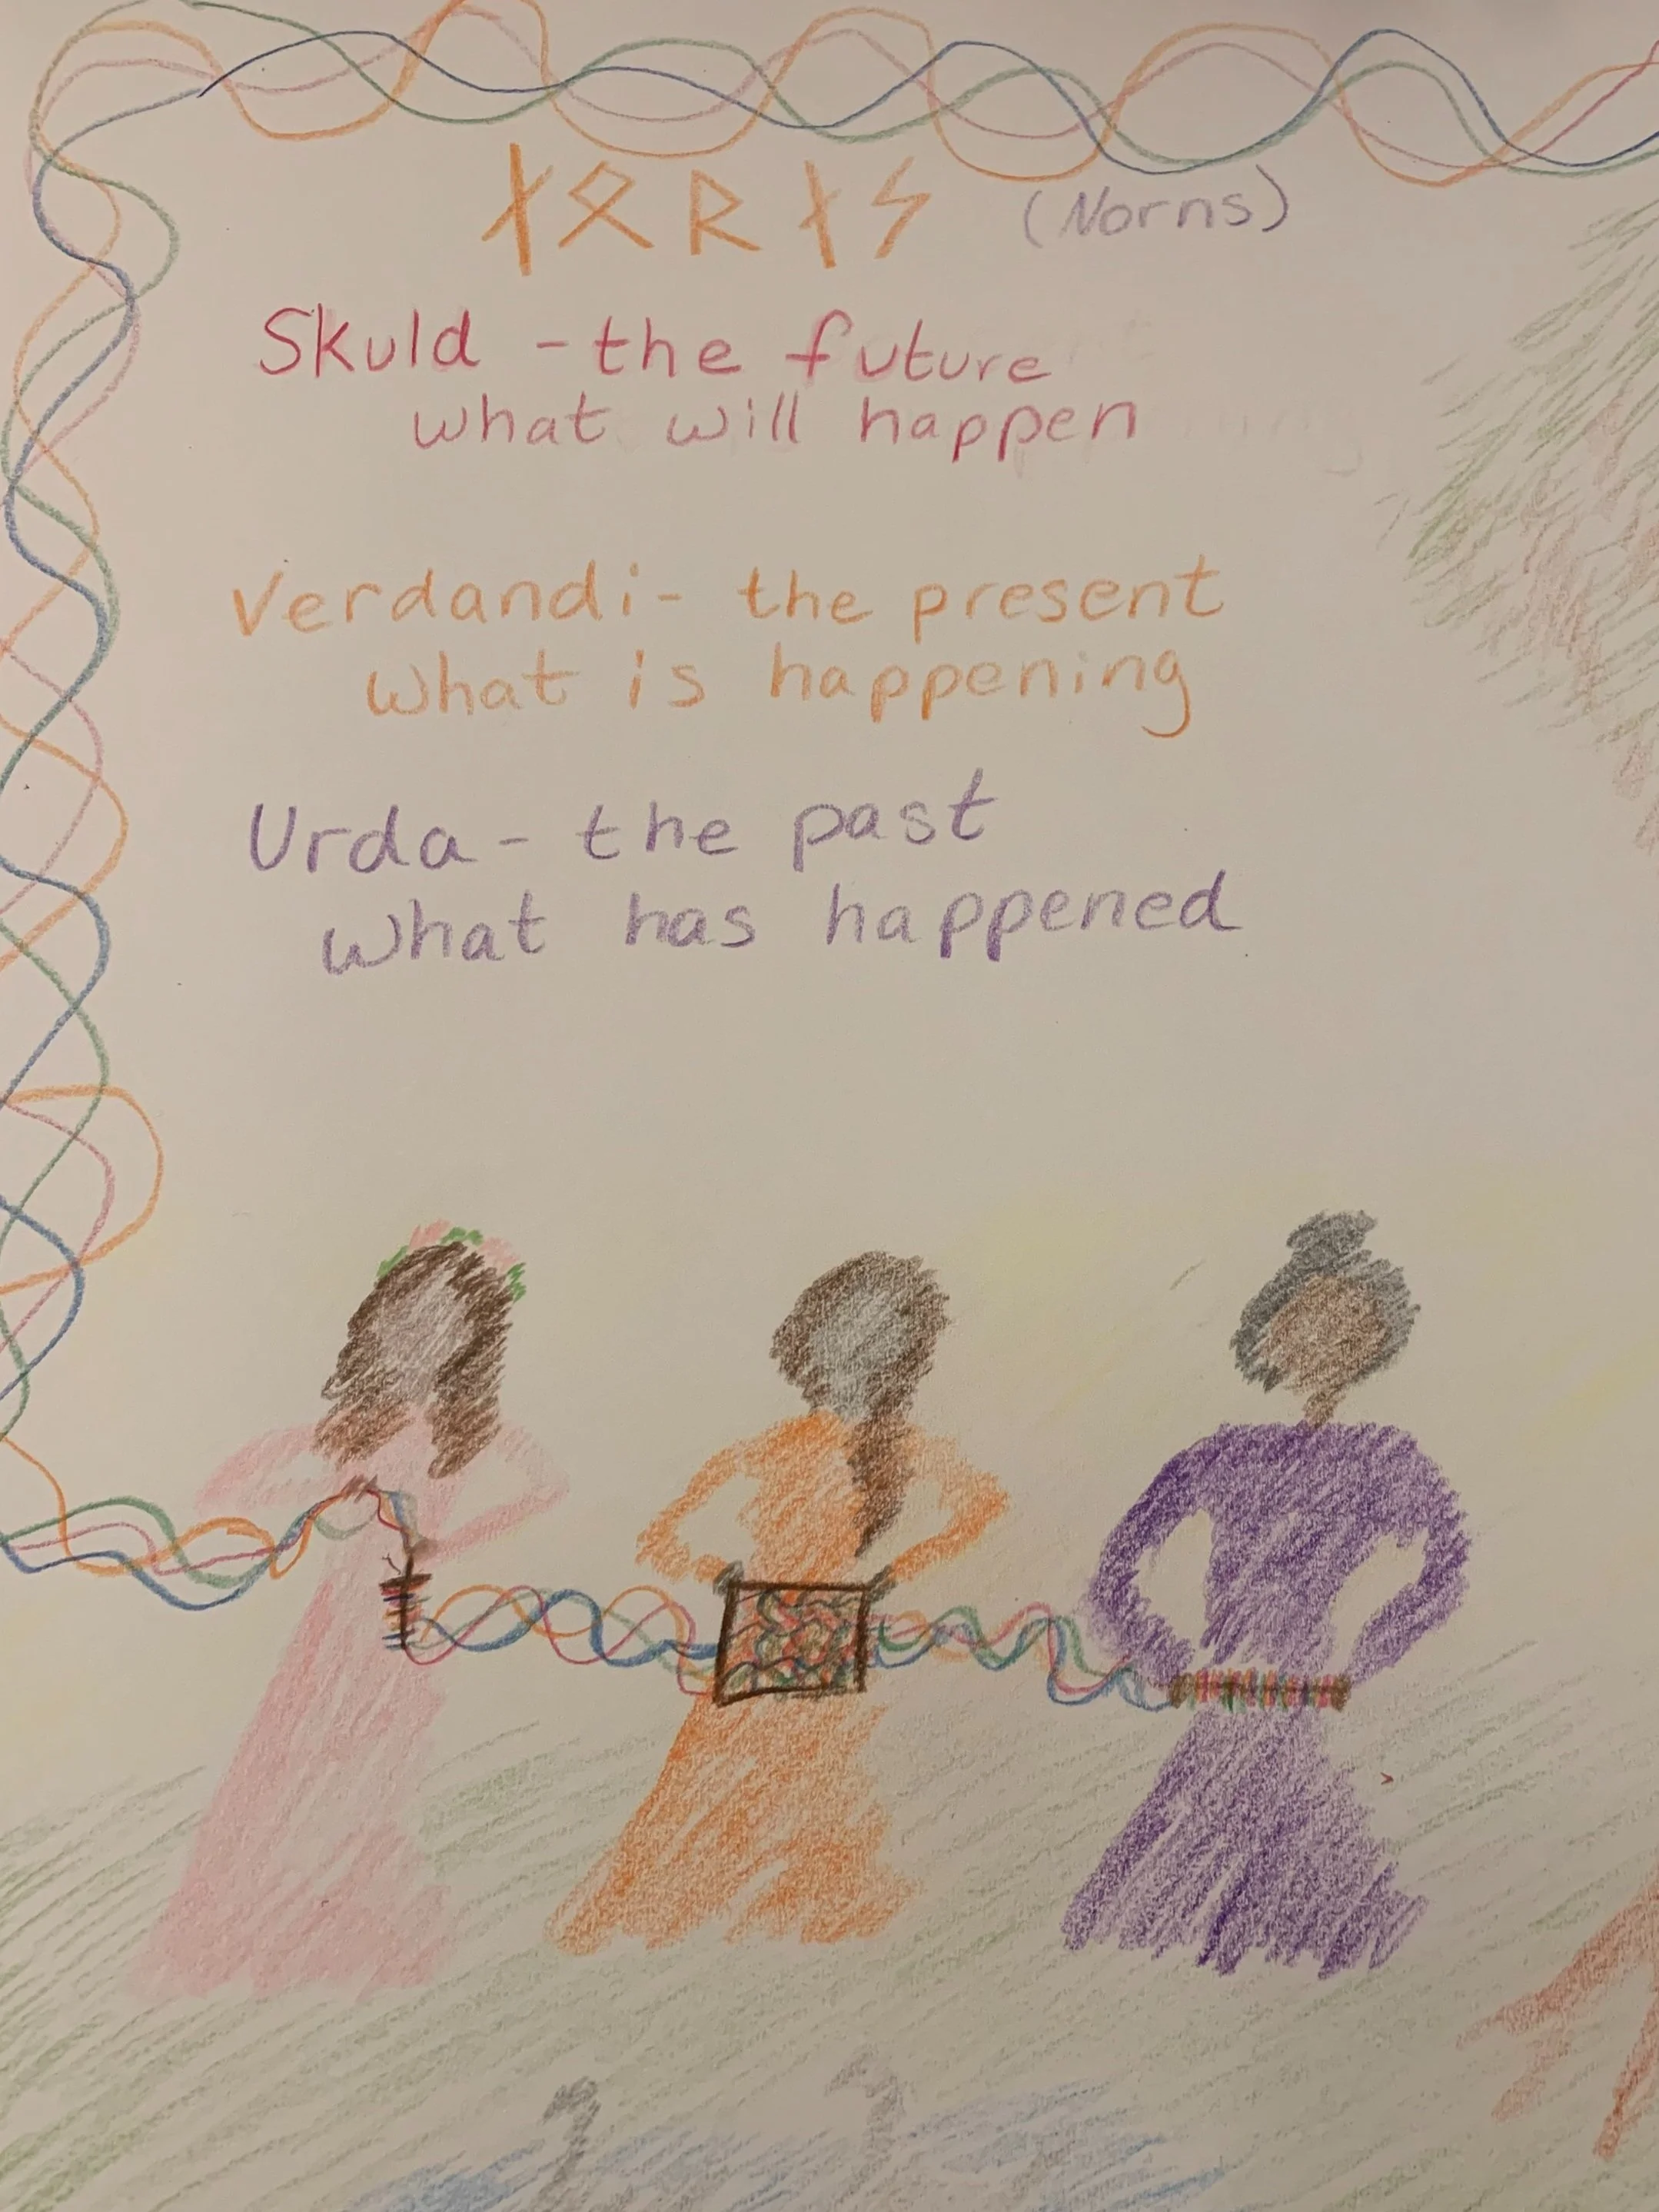 ᚾᛟᚱᚾᛋ (Norns)
Skuld - the future
what will happen
Verdandi - the present
what is happening
Urda - the past
what has happened